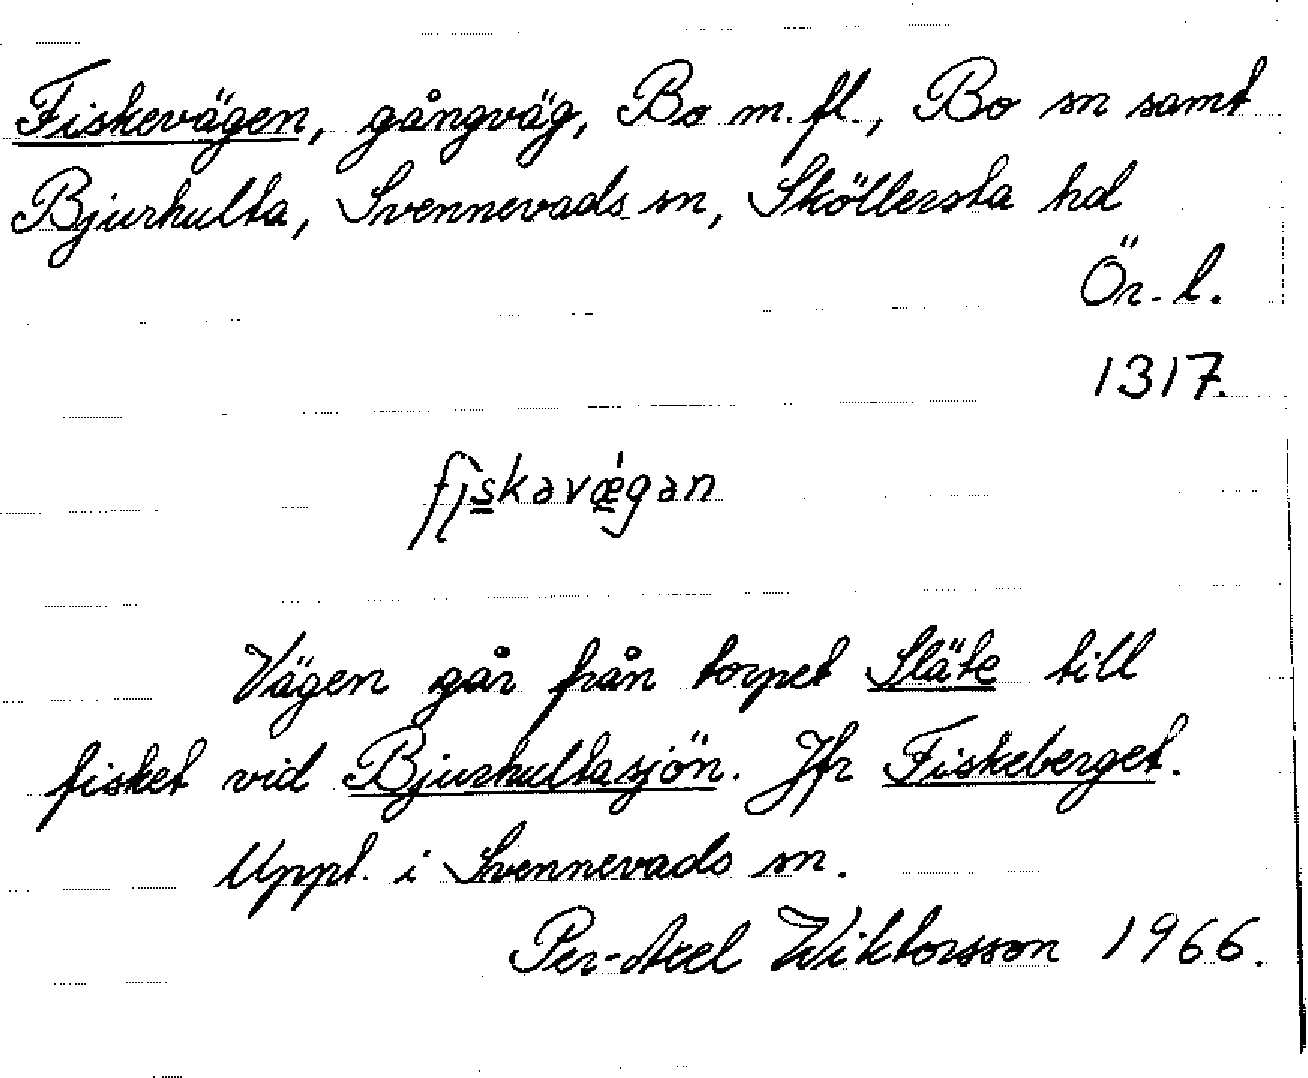 Fiskevägen, gångväg, Bo m. fl., Bo sn samt
Bjurhulta, Svennevads sn, Sköllersta hd
Ör. l.
1317.
Vägen går från torpet Släte till
fisket vid Bjurhultasjön. Jfr Fiskeberget.
Uppt. i Svennevads sn.
Per-Axel Wiktorsson 1966.